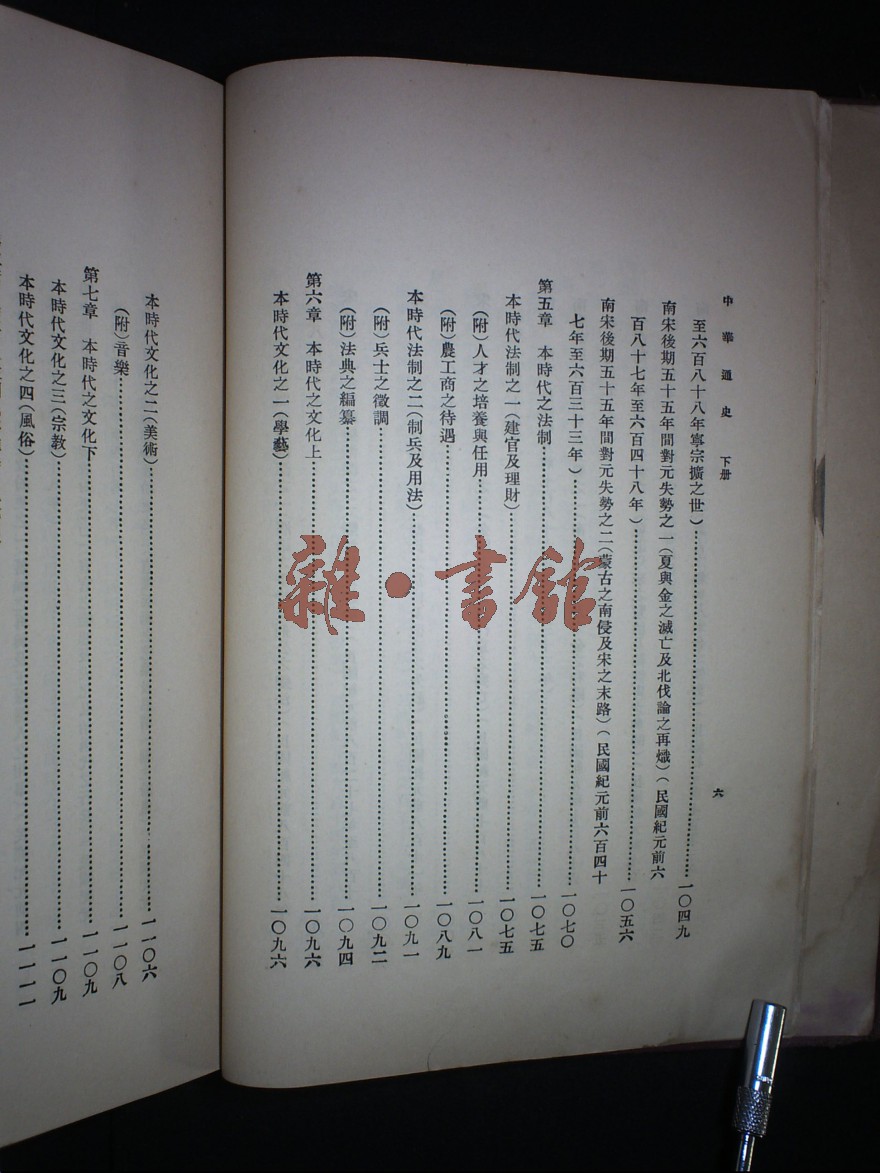 中華通史 下册
六
至六百八十八年寧宗擴之世)⋯⋯一〇四九
南宋後期五十五年間對元失勢之一(夏與金之滅亡及北伐論之再熾)(民國紀元前六
百八十七年至六百四十八年)⋯⋯一〇五六
南宋後期五十五年間對元失勢之二(蒙古之南侵及宋之末路)(民國紀元前六百四十
七年至六百三十三年)⋯⋯一〇七〇
第五章 本時代之法制⋯⋯一〇七五
本時代法制之一(建官及理財)⋯⋯一〇七五
(附)人才之培養與任用⋯⋯一〇八一
(附)農工商之待遇⋯⋯一〇八九
本時代法制之二(制兵及用法)⋯⋯一〇九一
(附)兵士之徵調⋯⋯一〇九二
(附)法典之編纂⋯⋯一〇九四
第六章 本時代之文化上⋯⋯一〇九六
本時代文化之一(學藝)⋯⋯一〇九六
本時代文化之二(美術)⋯⋯一一〇六
(附)音樂⋯⋯一一〇八
第七章 本時代之文化下⋯⋯一一〇九
本時代文化之三(宗教)⋯⋯一一〇九
本時代文化之四(風俗)⋯⋯一一一一
雜·書館